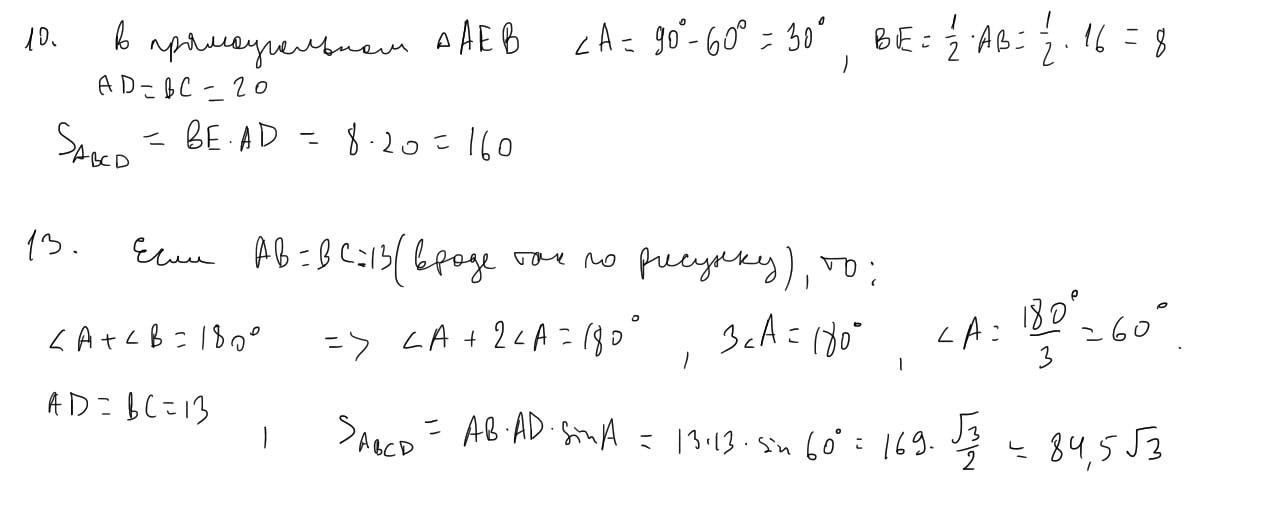 10. В прямоугольном △AEB ∠A = 90° - 60° = 30°, BE = 1/2 · AB = 1/2 · 16 = 8
AD = BC = 20
S_ABCD = BE · AD = 8 · 20 = 160
13. Если AB = BC = 13 (вроде так по рисунку), то:
∠A + ∠B = 180° => ∠A + 2∠A = 180°, 3∠A = 180°, ∠A = 180°/3 = 60°.
AD = BC = 13, S_ABCD = AB · AD · sin A = 13 · 13 · sin 60° = 169 · √3/2 = 84,5√3